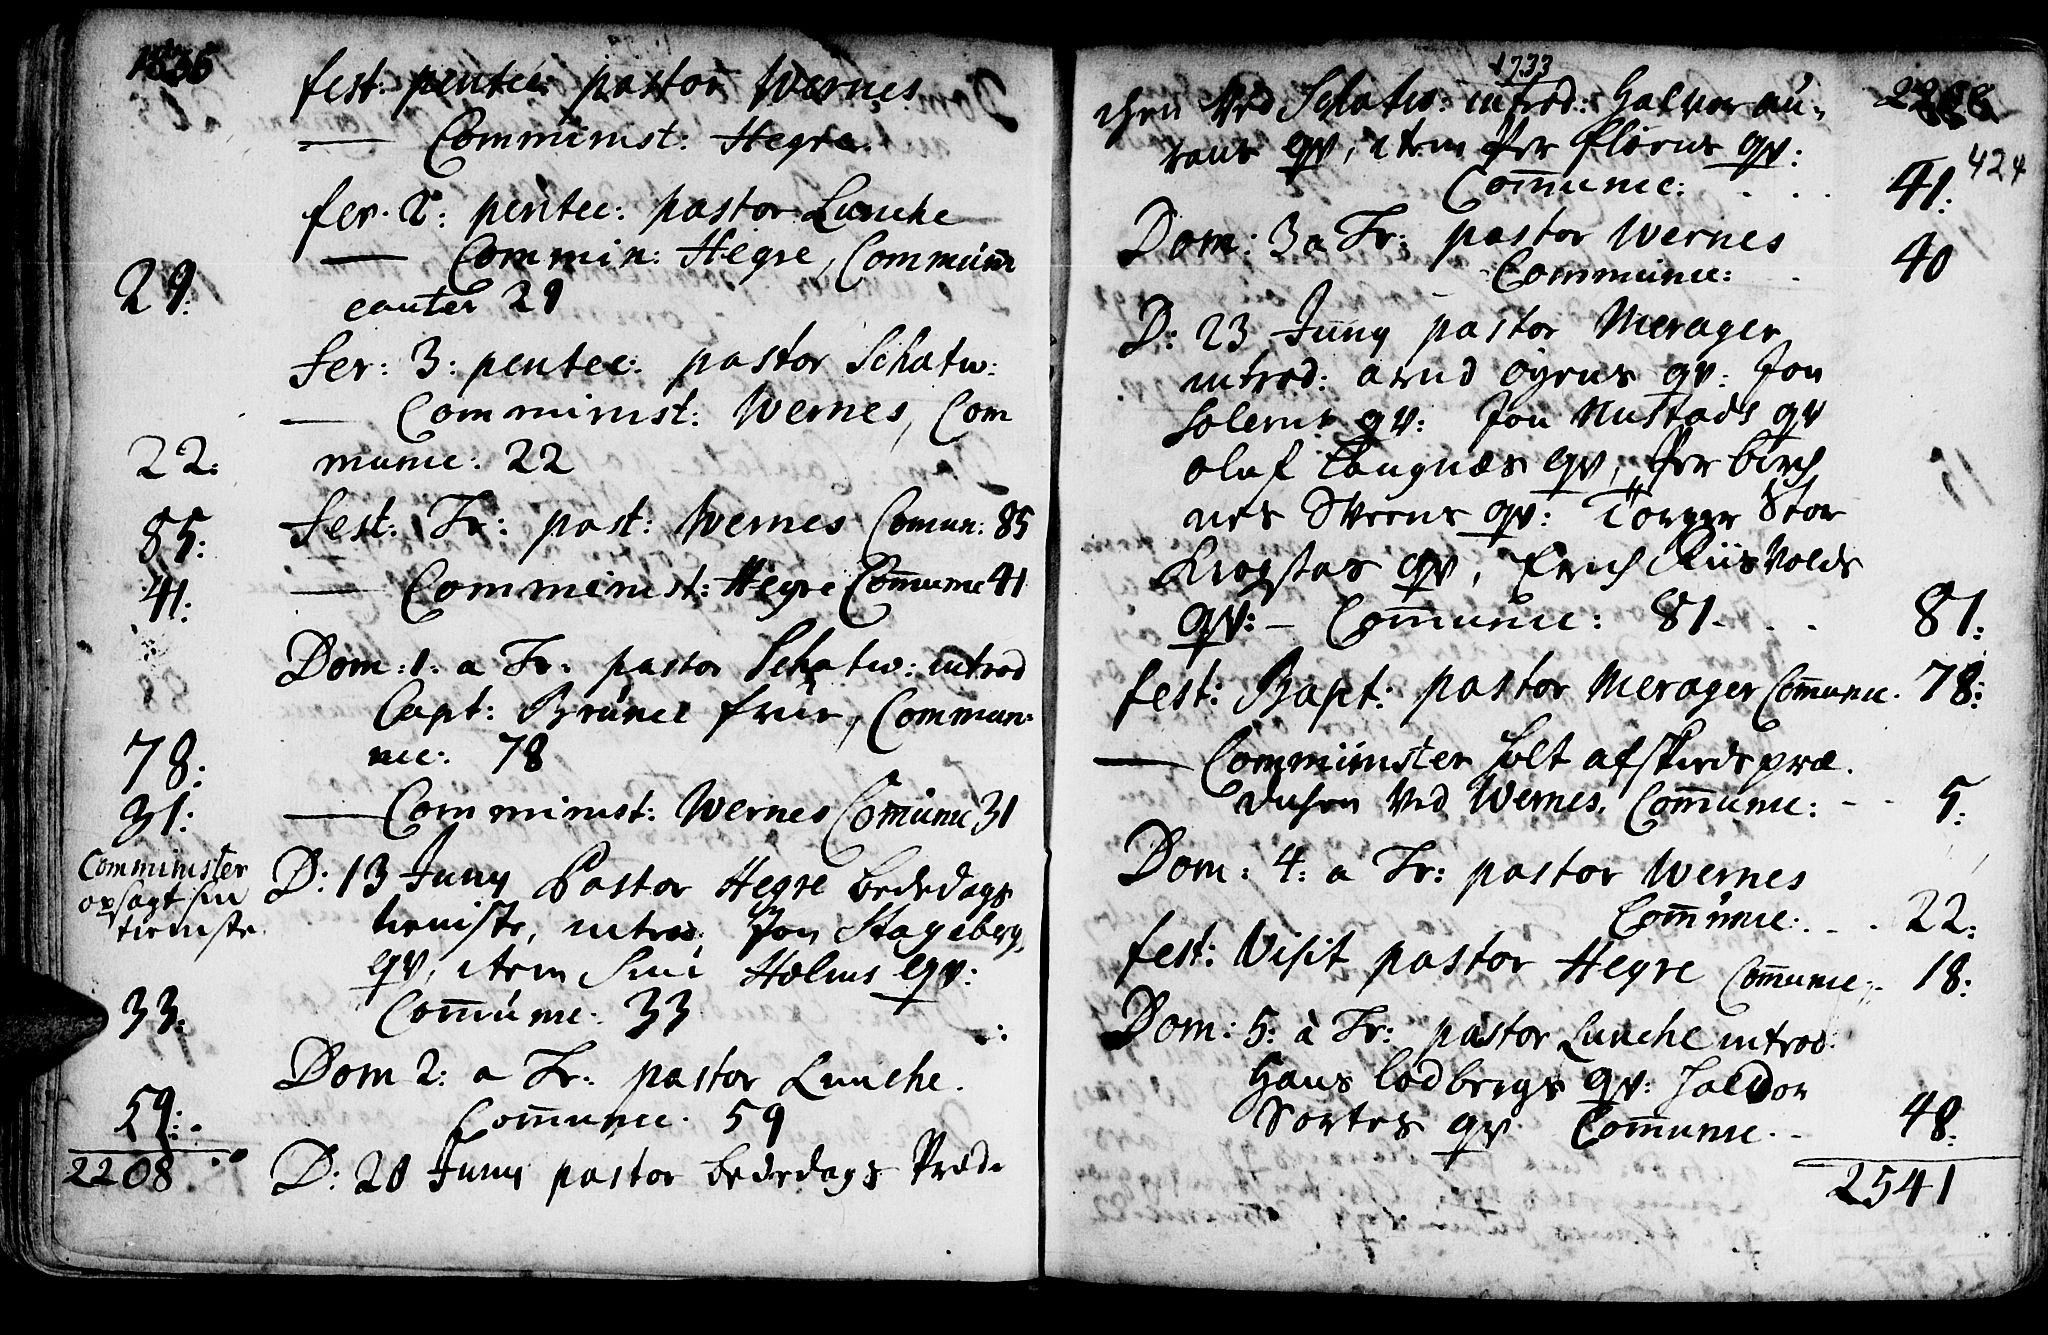 fest: pentec: pastor Wernes
— Comminist: Hegre.
fer. 2: pentec: pastor Lunche
— Commin: Hegre, Communi
29: canter 29
fer: 3: pentec: pastor Schatw:
— Comminist: Wernes, Com
22: munic: 22
85: fest: Tr: past: Wernes Comun: 85
41: — Comminist: Hegre Comunic 41
Dom: 1: a Tr: pastor Schatw: introd
Capt: Brunei frue, Commun=
78: nic: 78
31: — Comminist: Wernes Comunic 31
Comminister
opsagt sin
tieniste
D: 13 Juny Pastor Hegre Bededags
tieniste, introd: Jon Stagsberg
qv, item Hølms qv:
33: Comunic: 33
Dom 2: a Tr: pastor Lunche.
59: Comunic. 59
2208
D: 20 Juny pastor bededags Præd-
1733
chen Ved Schatw: introd: Halvor au-
rans qv, item Per fløens qv:
424
Comunic: 41:
Dom: 3 a Tr: pastor Wernes
Communic: 40
D: 23 Juny pastor Merager
introd: arnd øyens qv: Jon
qv: Jon Mustads qv
oluf Langnæs qv, Per birch
nes Steens qv: Torger Stor
Krogstas qv, Erich Riisvolds
qv: — Comunic: 81. 81:
fest: Bapt: pastor Merager Comunic. 78:
— Comminister Holt afskeeds præ.
dichen Ved Wernes. Comunic: 5:
Dom: 4: a Tr: pastor Wernes
Comunic: 22:
fest: Visit pastor Hegre Comunic: 18:
Dom: 5: a Tr: pastor Lunche introd:
Hans Lodbergs qv: Haldor
Sortes qv Comunic. 48:
2541